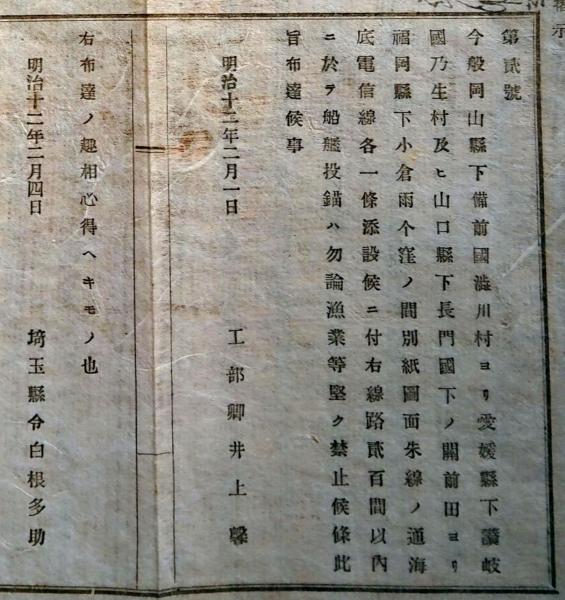 第貳號
今般岡山縣下備前國澁川村ヨリ愛媛縣下讚岐
國乃生村及ヒ山口縣下長門國下ノ關前田ヨリ
福岡縣下小倉雨个窪ノ間別紙圖面朱線ノ通海
底電信線各一條添設候ニ付右線路貳百間以內
ニ於テ船艦投錨ハ勿論漁業等堅ク禁止候條此
旨布達候事
明治十二年二月一日 工部卿井上馨
右布達ノ趣相心得ヘキモノ也
明治十二年二月四日 埼玉縣令白根多助